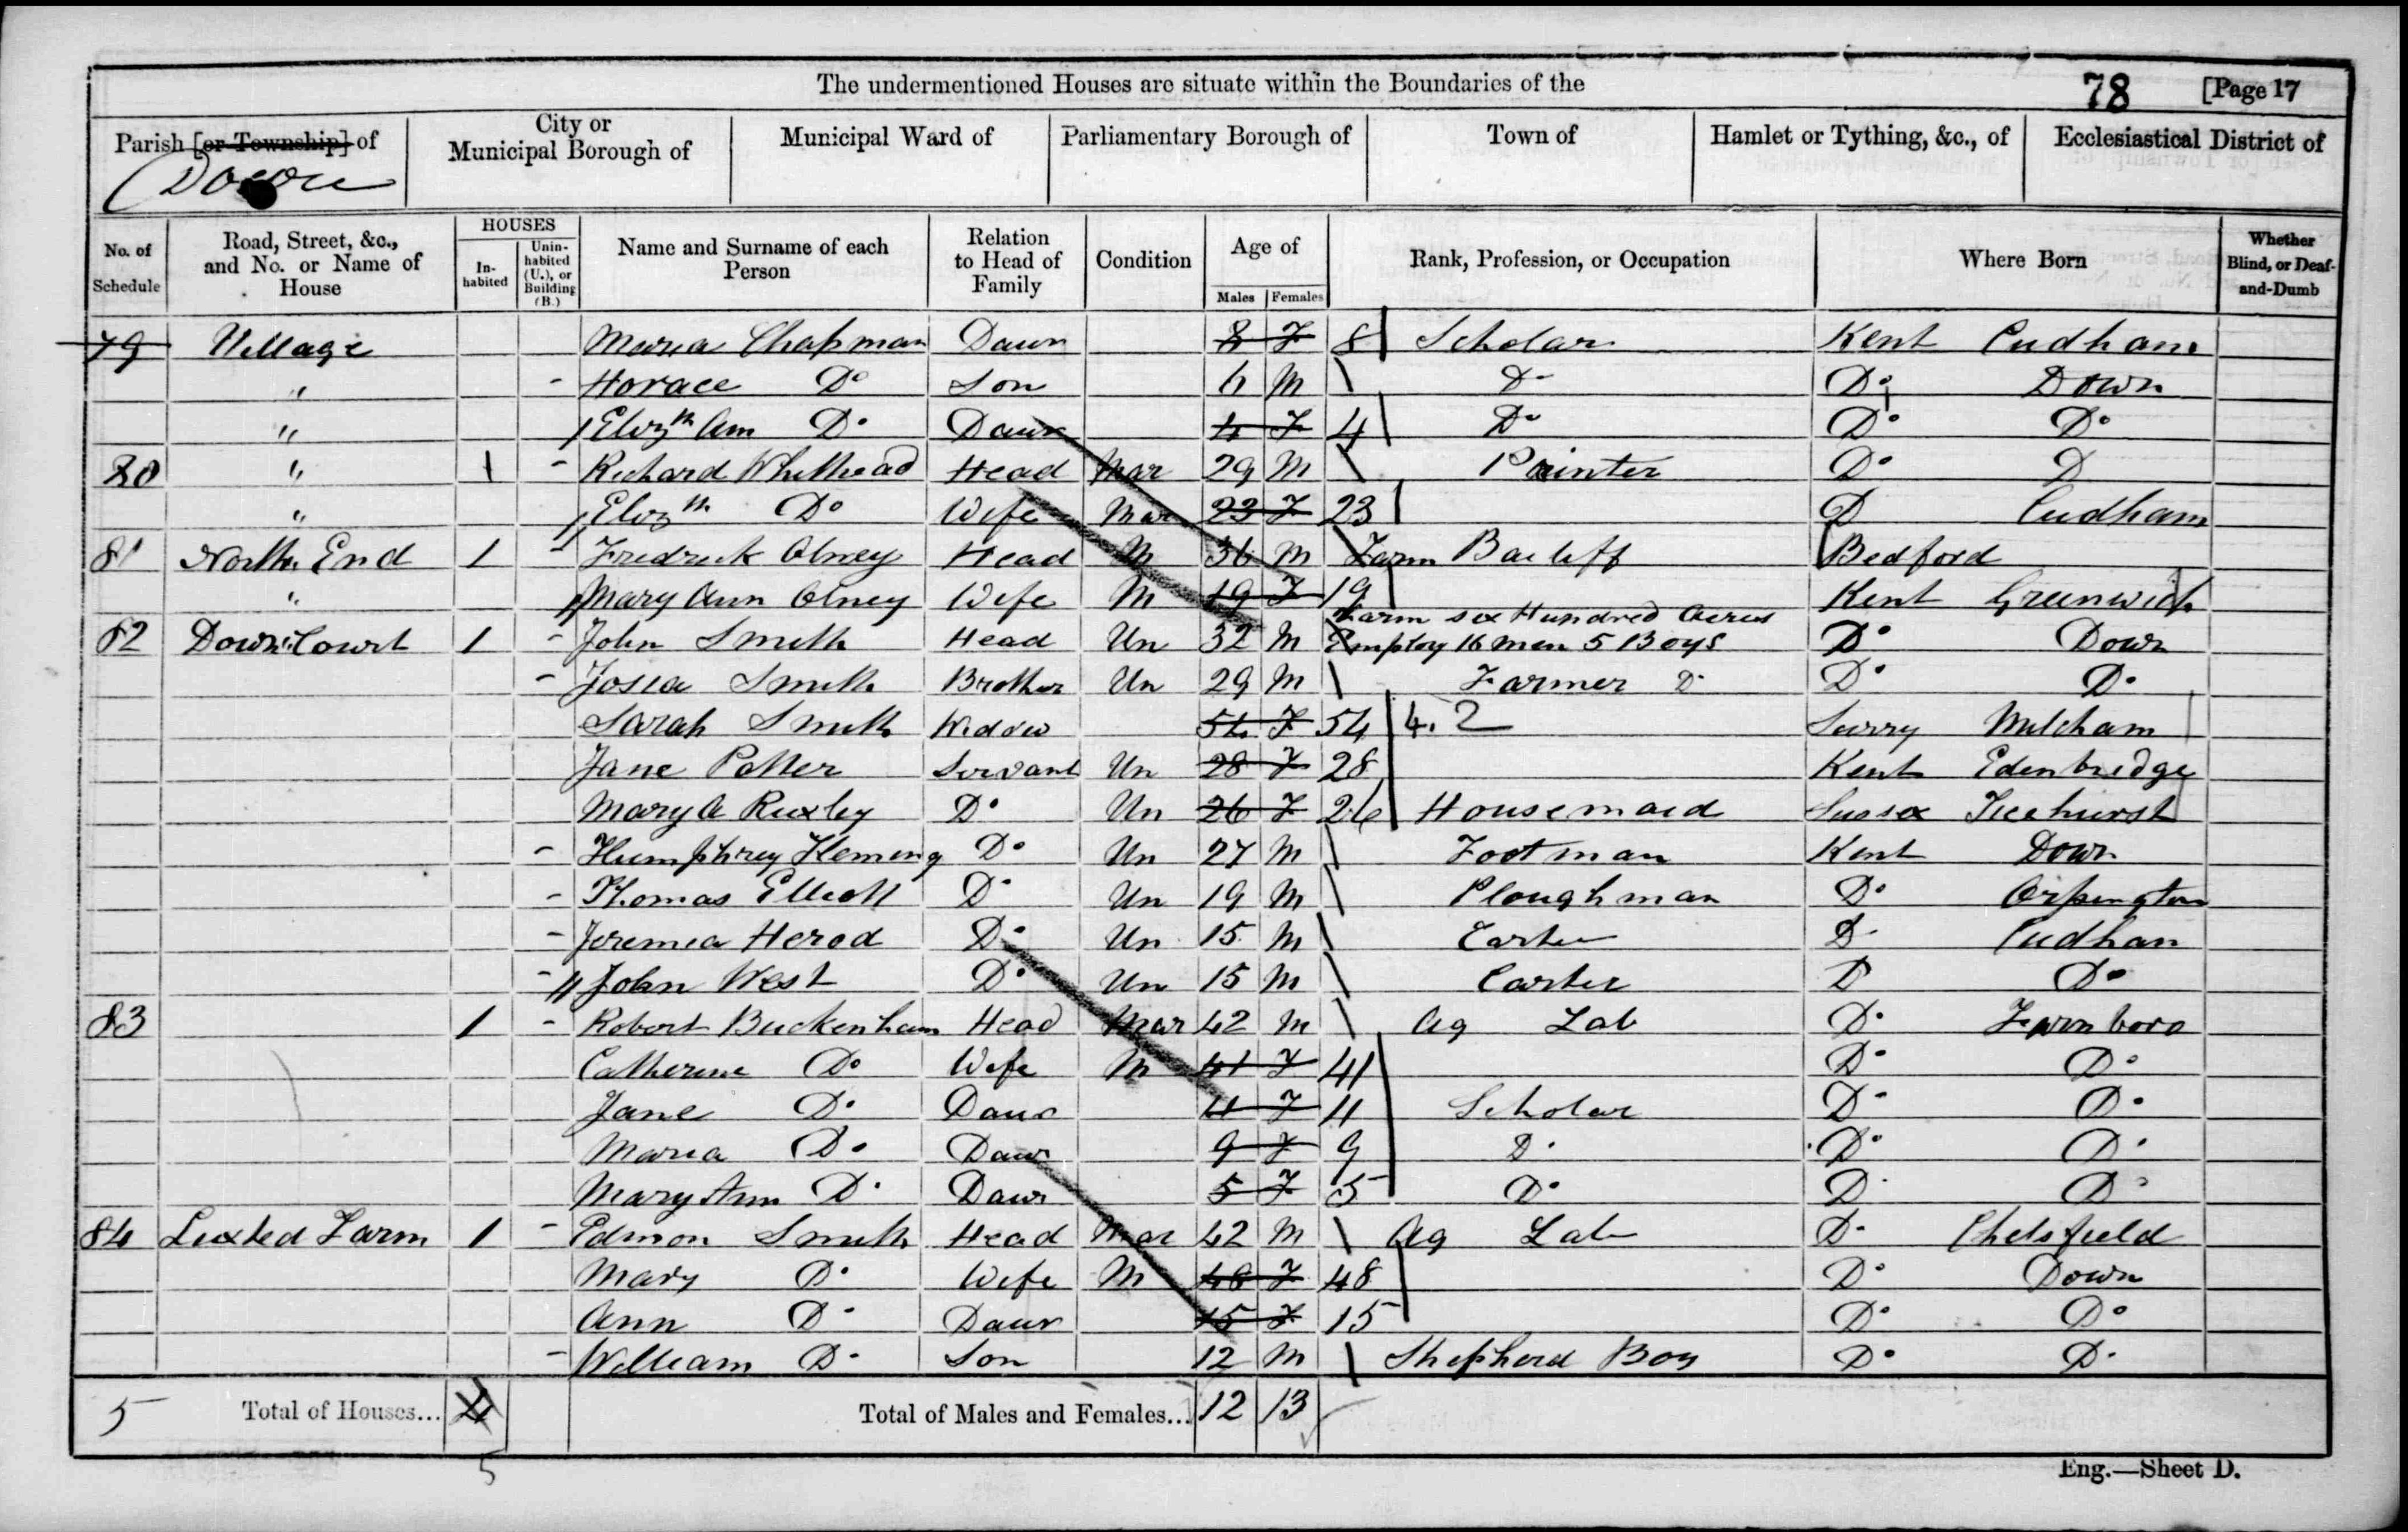 The undermentioned Houses are situate within the Boundaries of the 78 [Page 17
Parish [or Township] of City or Municipal Borough of Municipal Ward of Parliamentary Borough of Town of Hamlet or Tything, &c., of Ecclesiastical District of
Down
No. of Schedule Road, Street, &c., and No. or Name of House HOUSES In-habited Unin-habited (U.), or Building (B.) Name and Surname of each Person Relation to Head of Family Condition Age of Males Females Rank, Profession, or Occupation Where Born Whether Blind, or Deaf-and-Dumb
79 Village Maria Chapman Daur 8 F 8 Scholar Kent Cudham
" Horace Do Son 6 M Do Do Down
" Elizth Ann Do Daur 4 F 4 Do Do Do
80 " 1 Richard Whithead Head Mar 29 M Painter Do D
" Elizth Do Wife Mar 23 F 23 D Cudham
81 North End 1 Fredrick Olney Head M 36 M Farm Bailiff Bedford
" Mary Ann Olney Wife M 19 F 19 Kent Greenwich
82 Down Court 1 John Smith Head Un 32 M Farm six Hundred Acres Employ 16 men 5 Boys Do Down
Josia Smith Brother Un 29 M Farmer Do Do Do
Sarah Smith Widow 54 F 54 4. 2 Surry Mitcham
Jane Potter Servant Un 28 F 28 Kent Edenbridge
Mary A Ruxley Do Un 26 F 26 Housemaid Sussex Ticehurst
Humphrey Fleming Do Un 27 M Footman Kent Down
Thomas Elliott Do Un 19 M Ploughman Do Orpington
Jeremia Herod Do Un 15 M Carter Do Cudhan
John West Do Un 15 M Carter D Do
83 1 Robert Buckenham Head Mar 42 M Ag Lab Do Farnboro
Catherine Do Wife M 41 F 41 Do Do
Jane Do Daur 11 F 11 Scholar Do Do
Maria Do Daur 9 F 9 Do Do Do
Mary Ann Do Daur 5 F 5 Do Do Do
84 Luxted Farm 1 Edmon Smith Head Mar 42 M Ag Lab Do Chelsfield
Mary Do Wife M 48 F 48 Do Down
Ann Do Daur 15 F 15 Do Do
William Do Son 12 M Shepherd Boy Do Do
5 Total of Houses... 4 Total of Males and Females... 12 13
5
Eng.—Sheet D.